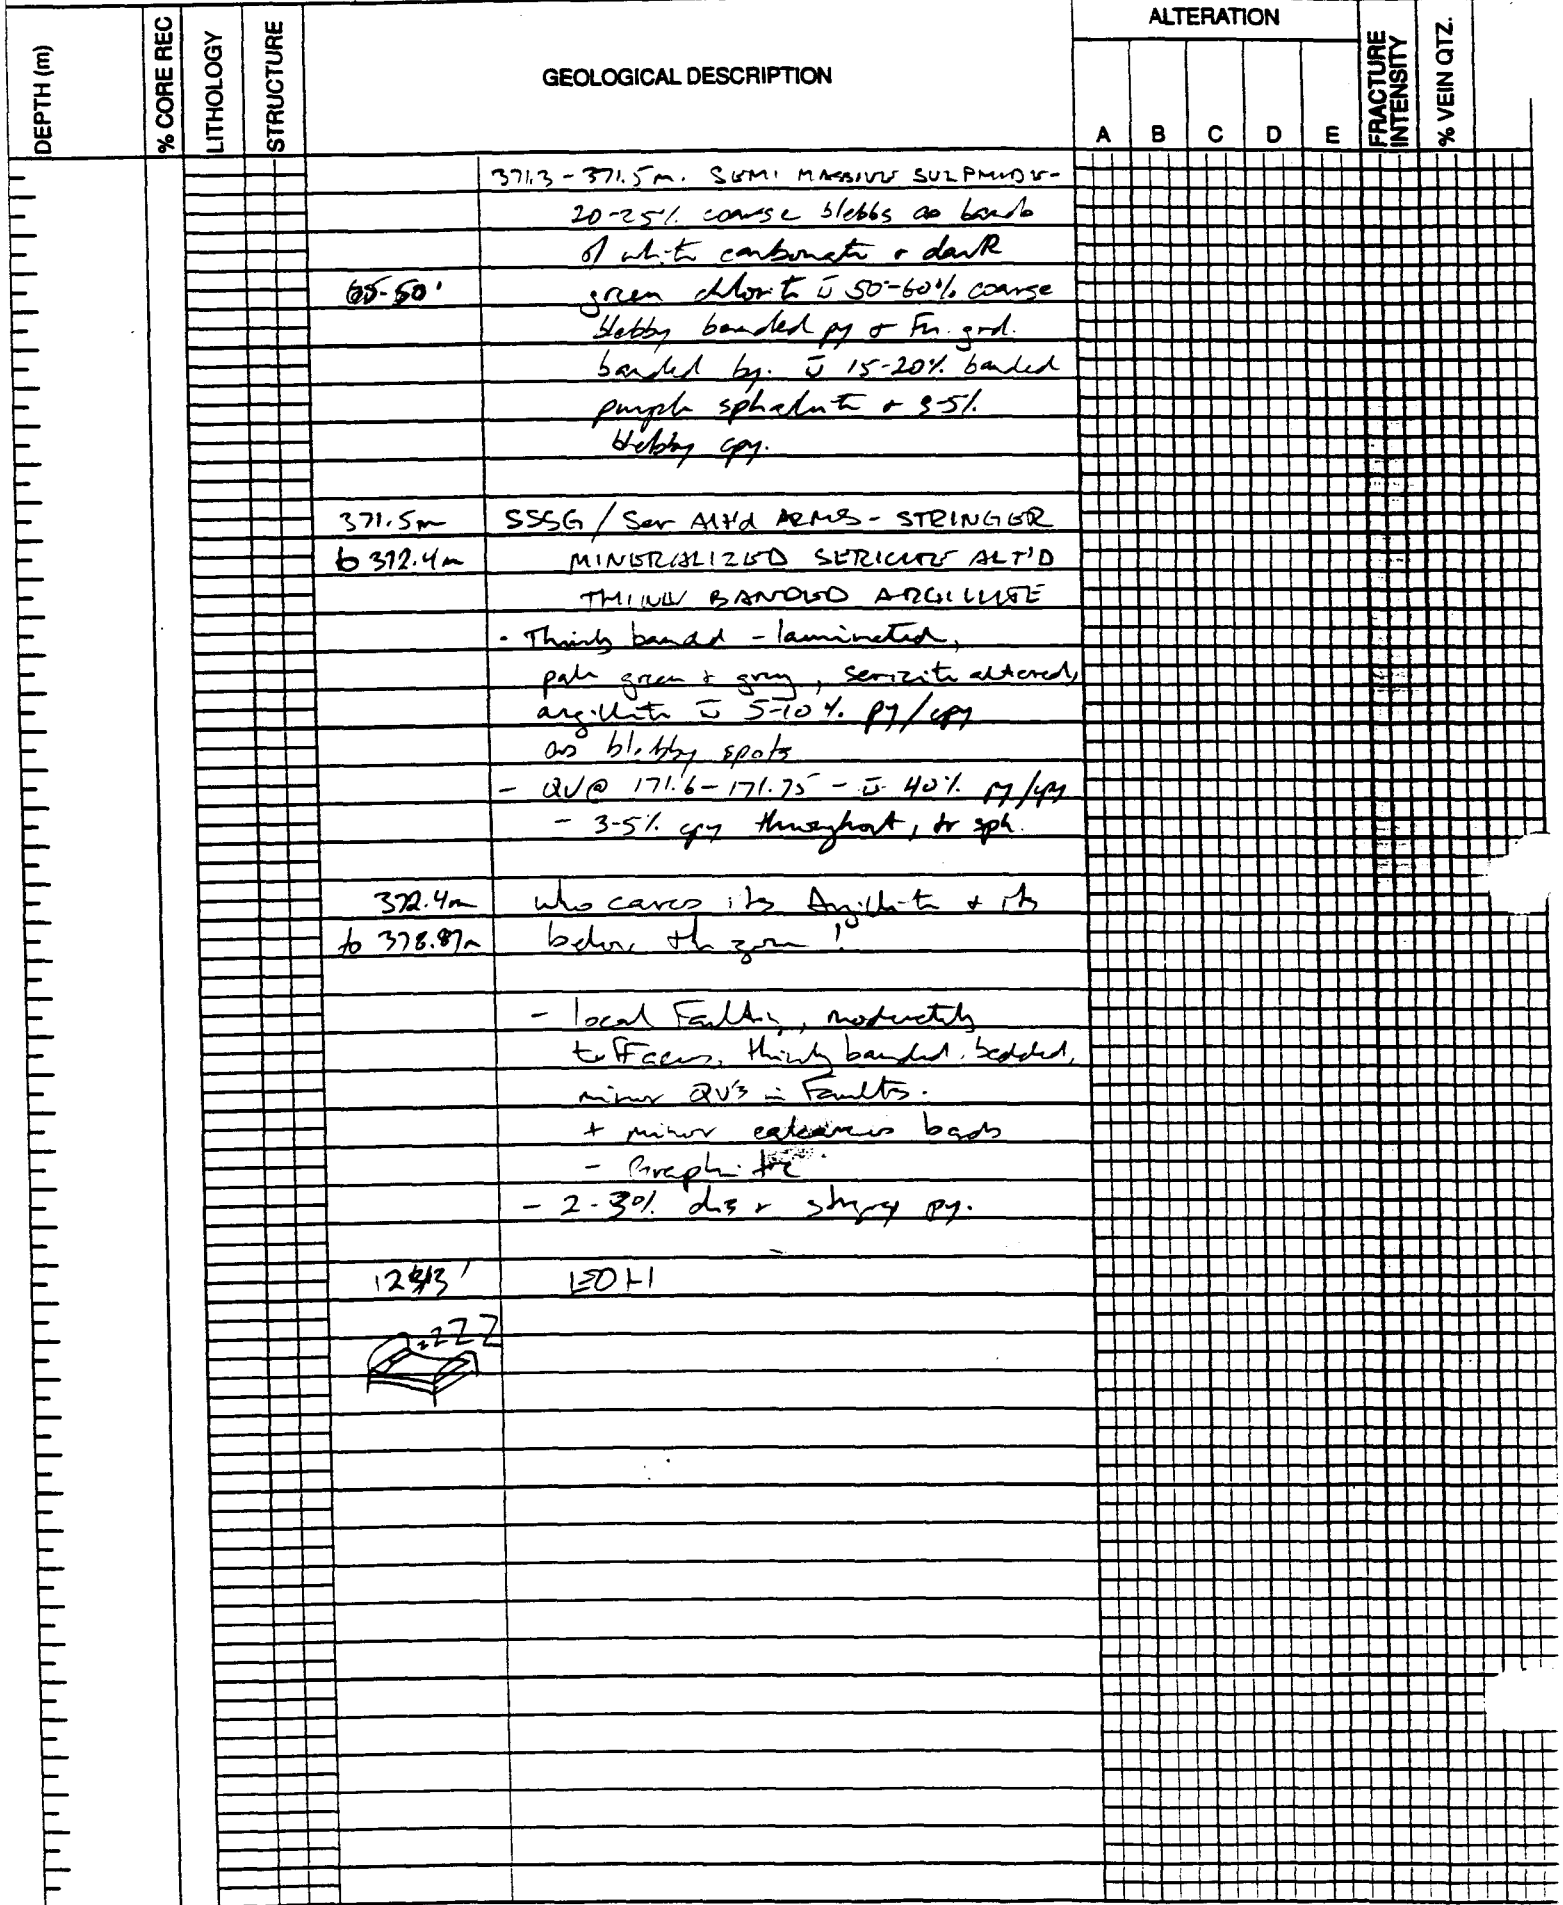 DEPTH (m)
% CORE REC
LITHOLOGY
STRUCTURE
GEOLOGICAL DESCRIPTION
ALTERATION
A B C D E
FRACTURE INTENSITY
% VEIN QTZ.
371.3 - 371.5m. SEMI MASSIVE SULPHIDE -
20-25% coarse blebbs as bands
of white carbonate + dark
65-50° green chlorite c̄ 50-60% coarse
blebby banded py + Fn. grd.
banded py. c̄ 15-20% banded
purple sphalerite + 3-5%
blebby cpy.
371.5m SSSG / Ser Alt'd - STRINGER
to 372.4m MINERALIZED SERICITE ALT'D
THINLY BANDED ARGILLITE
- Thinly banded - laminated,
pale green + grey, sericite altered,
argillite c̄ 5-10% py/cpy
as blebby spots
- QV @ 171.6 - 171.75 - c̄ 40% py/cpy
- 3-5% cpy throughout, tr sph.
372.4m who cares its Argillite + its
to 378.87m below the zone!
- local Faulting, moderately
tuffaceous, thinly banded, bedded,
minor QV's in Faults.
+ minor calcareous bands
- Graphitic
- 2-3% dis + stringy py.
EOH
zZZ